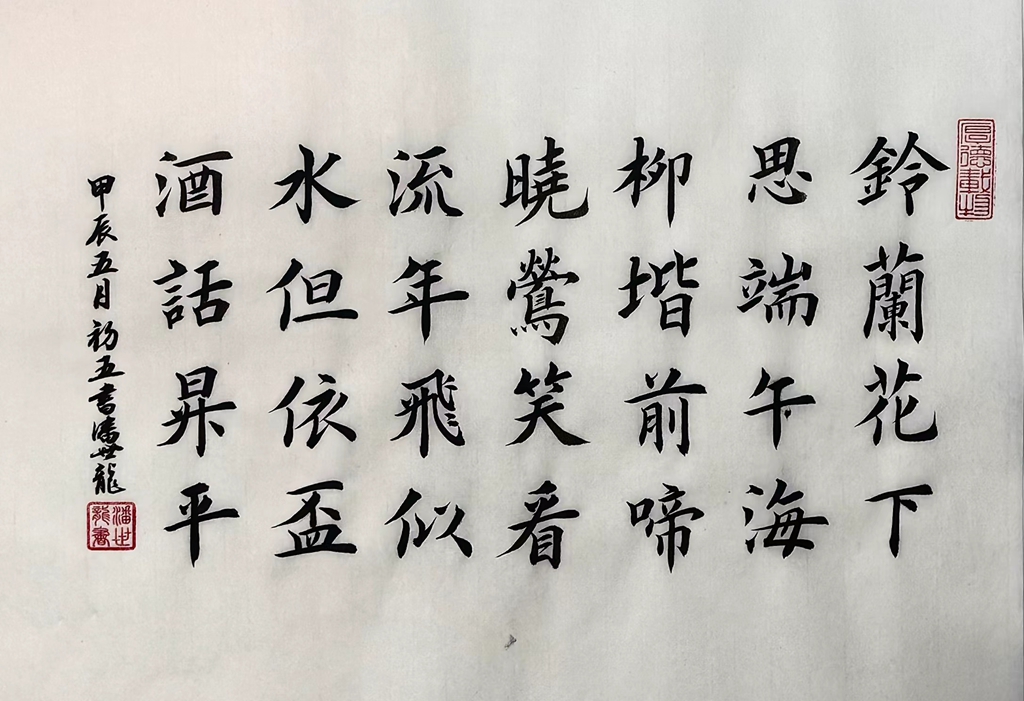 厚德載物
鈴蘭花下
思端午海
柳堦前啼
曉鶯笑看
流年飛似
水但依盃
酒話昇平
甲辰五月初五書潘世龍
潘世龍書